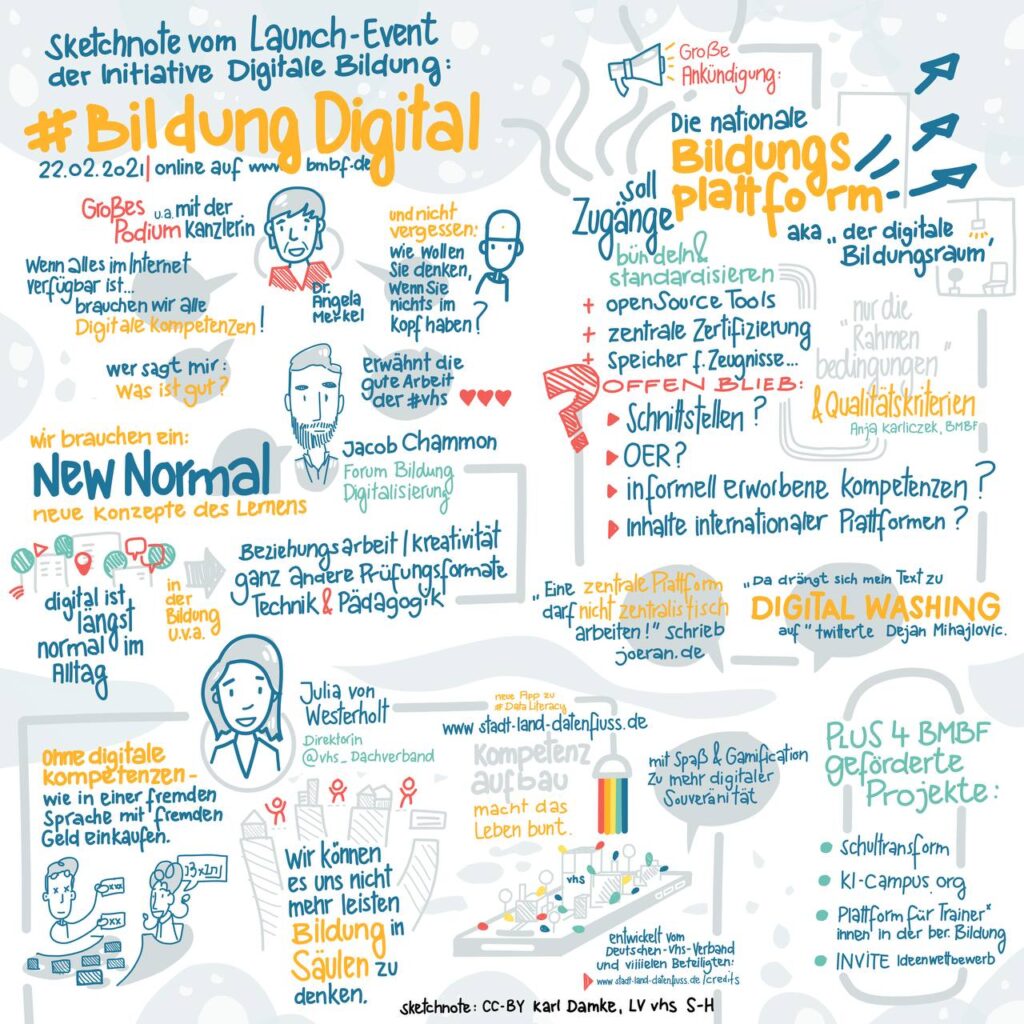 Sketchnote vom Launch-Event
der Initiative Digitale Bildung:
#Bildung Digital
22.02.2021 | online auf www.bmbf.de
Großes u.a. mit der
Podium Kanzlerin
Wenn alles im Internet
verfügbar ist...
brauchen wir alle
Digitale Kompetenzen!
Dr.
Angela
Merkel
und nicht
vergessen:
Wie wollen
Sie denken,
wenn Sie
nichts im
Kopf haben?
wer sagt mir:
was ist gut?
Erwähnt die
gute Arbeit
der #vhs
wir brauchen ein:
New Normal
neue Konzepte des Lernens
Jacob Chammon
Forum Bildung
Digitalisierung
digital ist
längst
normal im
Alltag
in
der
Bildung
u.v.a.
Beziehungsarbeit / Kreativität
ganz andere Prüfungsformate
Technik & Pädagogik
Große
Ankündigung:
Die nationale
Bildungs
plattform
soll
Zugänge
bündeln &
standardisieren
aka „der digitale
Bildungsraum“
+ openSource Tools
+ zentrale Zertifizierung
+ Speicher f. Zeugnisse...
„nur die
Rahmen
bedingungen“
& Qualitätskriterien
Anja Karliczek, BMBF
? OFFEN BLIEB:
Schnittstellen?
OER?
informell erworbene Kompetenzen?
Inhalte internationaler Plattformen?
„Eine zentrale Plattform
darf nicht zentralistisch
arbeiten!“ schrieb
joeran.de
„Da drängt sich mein Text zu
DIGITAL WASHING
auf“ twitterte Dejan Mihajlovic.
Julia von
Westerholt
Direktorin
@vhs_Dachverband
Ohne digitale
Kompetenzen-
wie in einer fremden
Sprache mit fremden
Geld einkaufen.
xxx
xx
Wir können
es uns nicht
mehr leisten
Bildung in
Säulen zu
denken.
neue App zu
# Data Literacy
www.stadt-land-datenfluss.de
Kompetenz
aufbau
macht das
Leben bunt.
mit Spaß & Gamification
zu mehr digitaler
Souveränität
vhs
entwickelt vom
Deutschen-vhs-Verband
und viiiielen Beteiligten:
www.stadt-land-datenfluss.de/credits
PLUS 4 BMBF
geförderte
Projekte:
schultransform
KI-Campus.org
Plattform für Trainer*
innen in der ber. Bildung
INVITE Ideenwettbewerb
sketchnote: CC-BY Karl Damke, LV vhs S-H